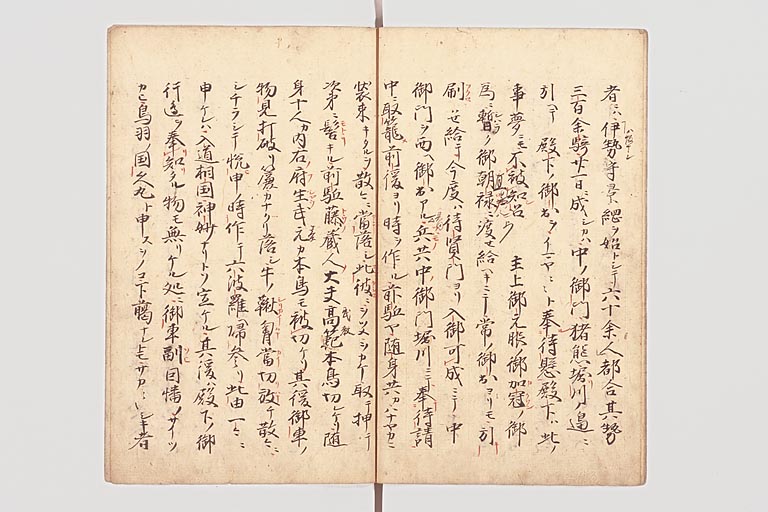 者ニハ伊勢守景綱ヲ始トシテ六十余人都合其勢
三百余騎廿一日ニ成シカハ中ノ御門猪熊堀川ノ邉ニ
引ヘテ殿下ノ御出ヲイマヤ〳〵ト奉待懸殿下ハ此ノ
事夢ニモ不被知召 主上御元服ノ御加冠ノ御
為ニ暫ク御朝禄ニ渡セ給ヘキニテ常ノ御出ヨリモ引
刷セ給テ今度ハ待賢門ヨリ入御可成ニテ中
御門ヲ西ヘ御出アル兵共中御門堀川ニテ奉待請
中ニ取籠前後ヨリ時ヲ作ル前駈ヤ随身共カハナヤカニ
装束キタルヲ散々ニ當落シ此彼ニ取テ押ヘテ
次第ニ髻キル前駈藤蔵人大夫高範本鳥切レケリ随
身十人カ内右府生武元カ本鳥モ被切ケリ其後御車ノ
物見打破リ簾カナクリ落シ牛ノ鞦胷當切放テ散々ニ
シチラシテ悦申ノ時作テ六波羅帰参リ此由一々ニ
申ケレハ入道相国神妙ナリトソ宣ケル其後ハ殿下ノ御
行邉ヲ奉知タル物モ無リケル処ニ御車副因幡ノサイツ
カヒ鳥羽ノ国久丸ト申スヲノコ下臈ナレトモサカ〳〵シキ者